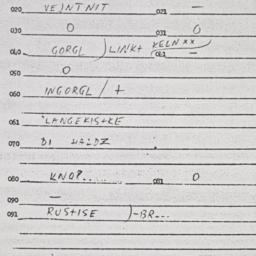 020 VEJNTNIT 021 —
030 O 031 O
040 GORGL ) LINK+ KELN xx
041 —
050 O
060 INGORGL / +
061 LANGEKIS+KE
070 BI
080 KNOP..... 081 O
090 —
091 RUSTISE )-BR...